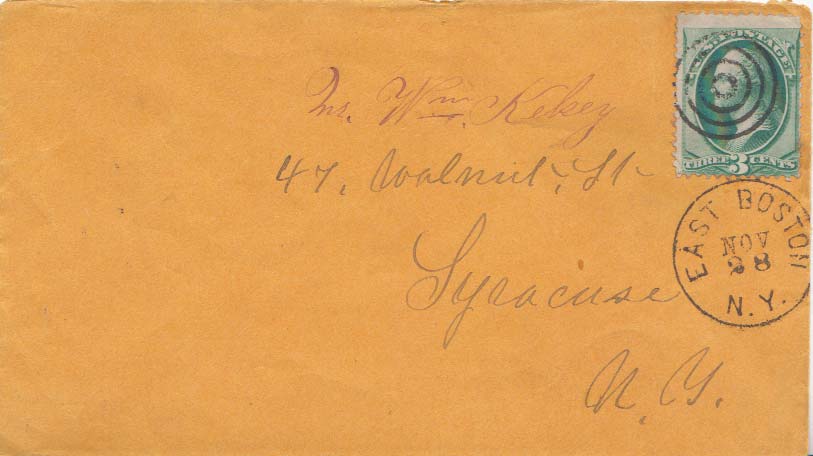 U.S. POSTAGE
THREE 3 CENTS
EAST BOSTON
NOV
28
N.Y.
Mr. Wm. Kelsey
47, Walnut, St
Syracuse
N.Y.